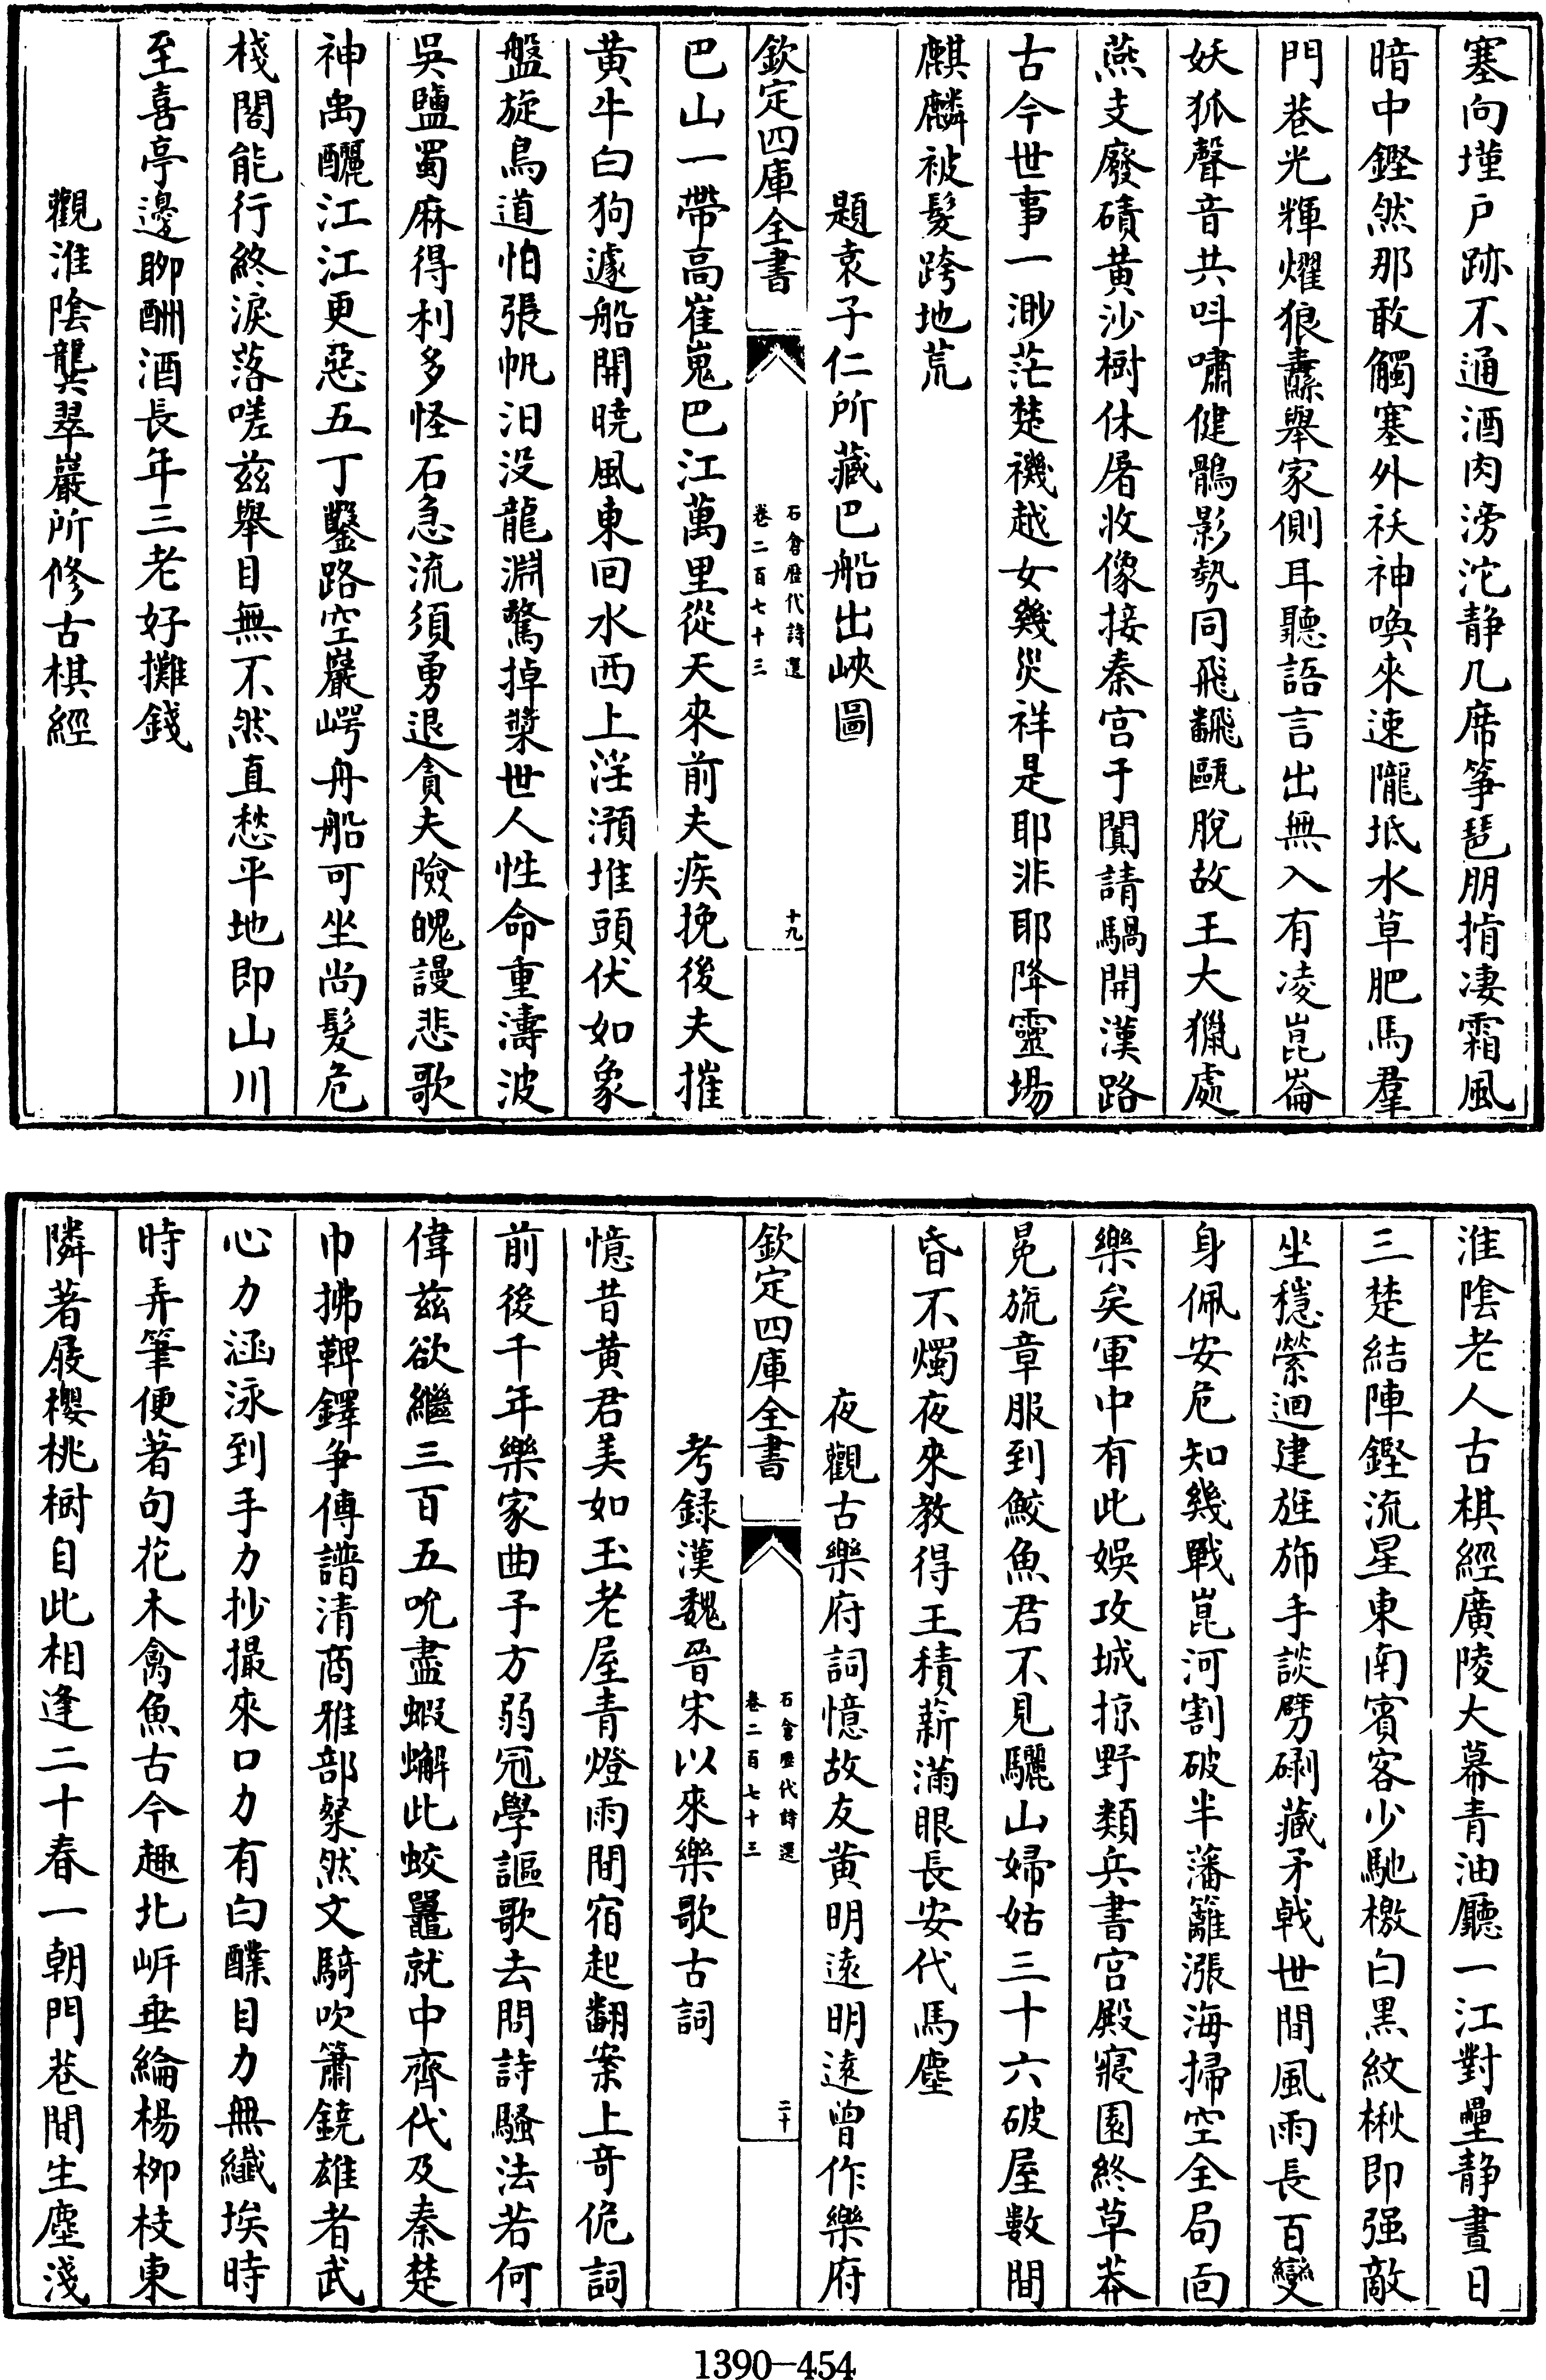 塞向墐戶跡不通酒肉滂沱静几席筝琶朋揹凄霜風
暗中鏗然那敢觸塞外祅神喚來速隴坻水草肥馬羣
門巷光輝燿狼纛舉家側耳聽語言出無入有凌崑崙
妖狐聲音共呌嘯健鶻影勢同飛翻甌脫故王大獵處
燕支廢磧黃沙樹休屠收像接秦宫于闐請騧開漢路
古今世事一渺茫楚禨越女幾災祥是耶非耶降靈場
麒麟被髮跨地荒
題袁子仁所藏巴船出峽圖
欽定四庫全書
石倉歷代詩選
卷二百七十三
十九
巴山一帶高崔嵬巴江萬里從天來前夫疾挽後夫摧
黃牛白狗遽船開曉風東回水西上淫澦堆頭伏如象
盤旋鳥道怕張帆汩没龍淵驚掉槳世人性命重濤波
吳鹽蜀麻得利多怪石急流須勇退貪夫險魄謾悲歌
神禹釃江江更惡五丁鑿路空巖崿舟船可坐尚髮危
棧閣能行終淚落嗟兹舉目無不然直愁平地即山川
至喜亭邊聊酬酒長年三老好攤錢
觀淮陰龔翠巖所修古棋經
淮陰老人古棋經廣陵大幕青油廳一江對壘静晝日
三楚結陣鏗流星東南賓客少馳檄白黑紋楸即强敵
坐穏縈迴建旌斾手談劈硎藏矛戟世間風雨長百變
身佩安危知幾戰崑河割破半藩籬漲海掃空全局面
樂矣軍中有此娛攻城掠野類兵書宫殿寢園終草莽
冕旒章服到鮫魚君不見驪山婦姑三十六破屋數間
昏不燭夜來教得王積薪滿眼長安代馬塵
夜觀古樂府詞憶故友黃明遠明遠曾作樂府
欽定四庫全書
石倉歷代詩選
卷二百七十三
二十
考録漢魏晉宋以來樂歌古詞
憶昔黃君美如玉老屋青燈雨間宿起翻案上奇佹詞
前後千年樂家曲予方弱冠學謳歌去問詩騷法若何
偉兹欲繼三百五吮盡蝦蠏此蛟鼉就中齊代及秦楚
巾拂鞞鐸爭傳譜清商雅部粲然文騎吹簫鐃雄者武
心力涵泳到手力抄撮來口力有白醭目力無纖埃時
時弄筆便著句花木禽魚古今趣北㟁垂綸楊柳枝東
隣著屐櫻桃樹自此相逢二十春一朝門巷間生塵淺
1390—454